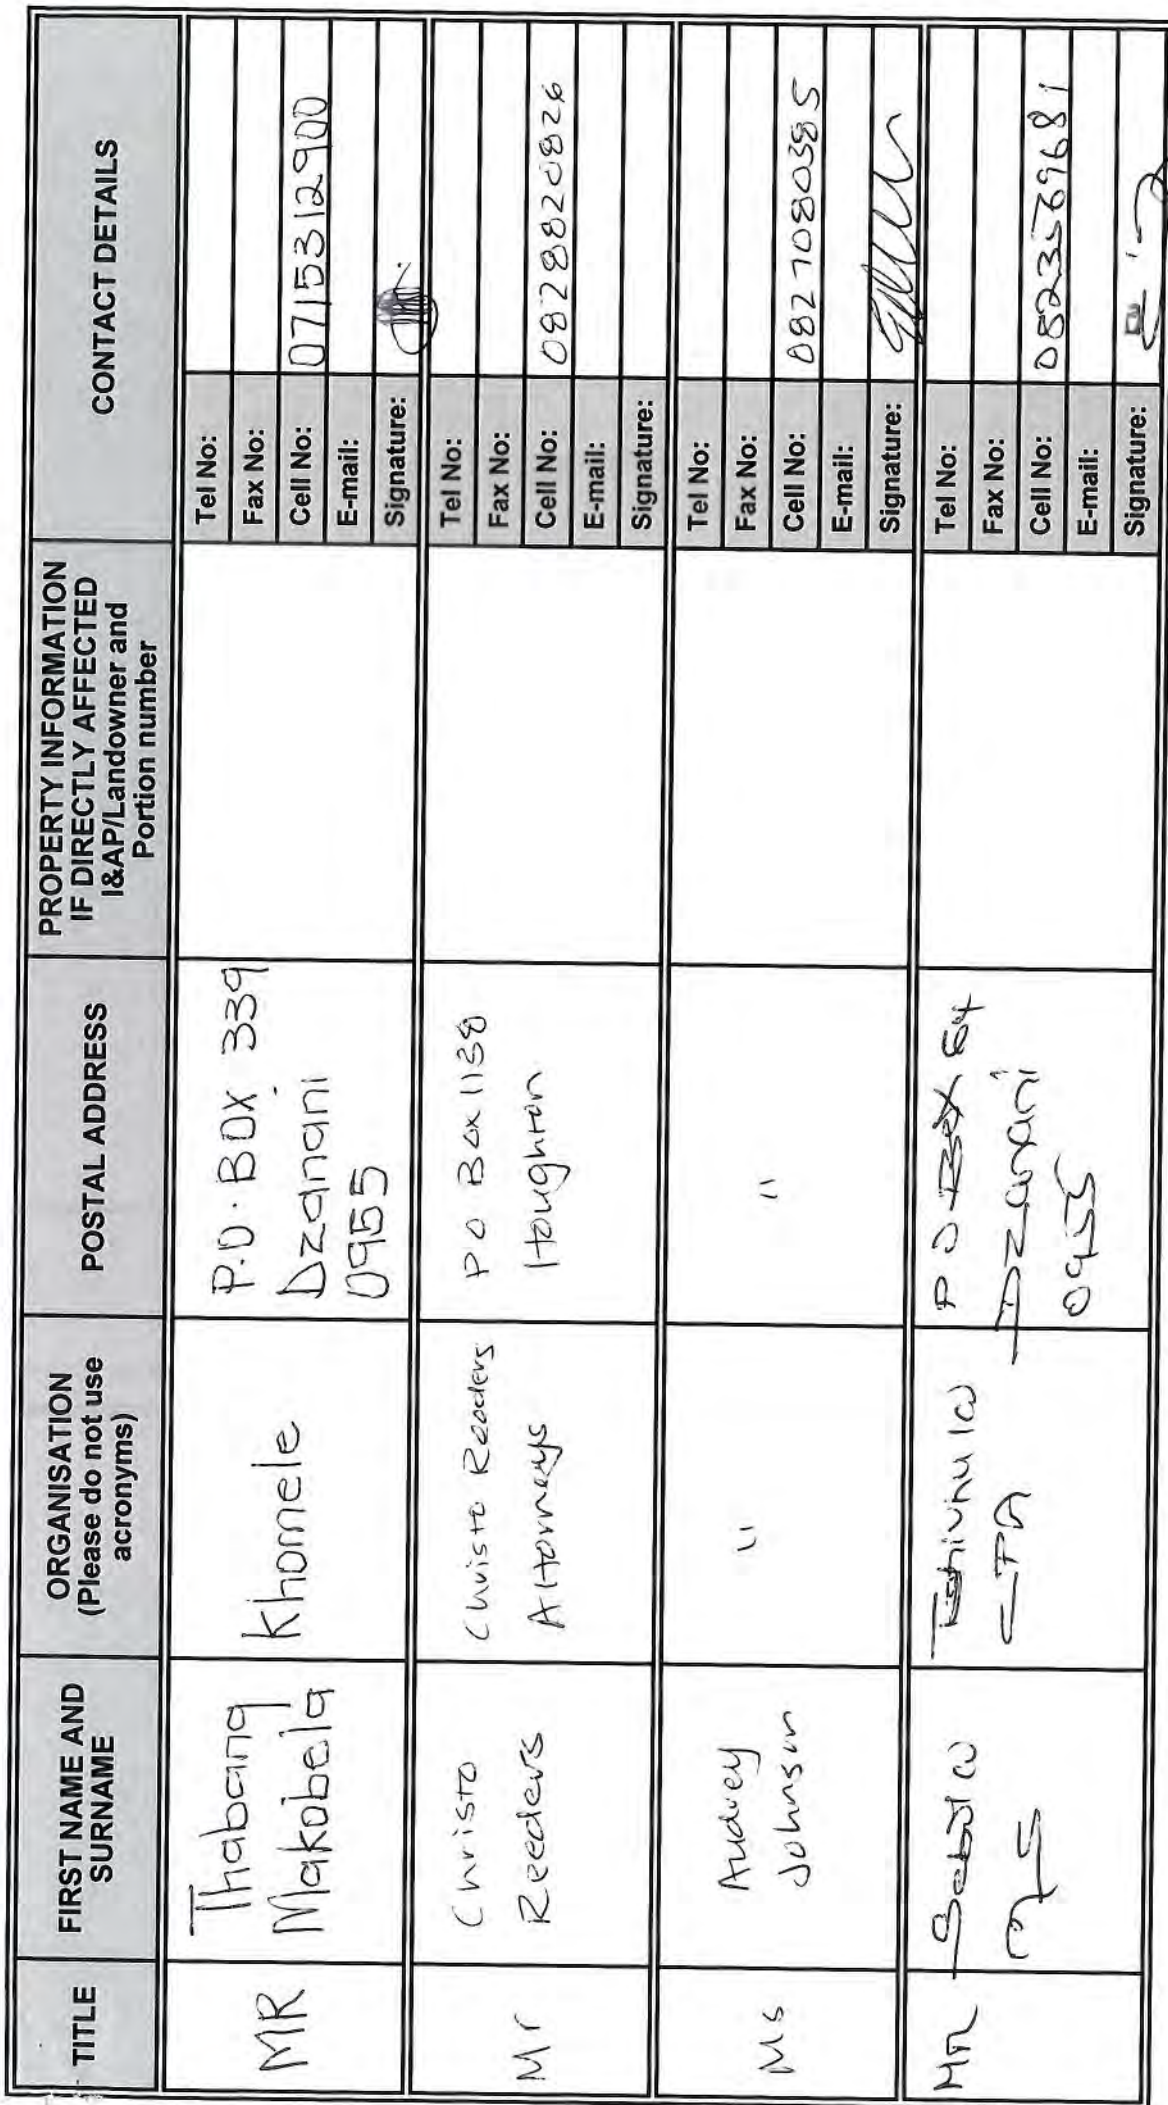 TITLE
FIRST NAME AND
SURNAME
ORGANISATION
(Please do not use
acronyms)
POSTAL ADDRESS
PROPERTY INFORMATION
IF DIRECTLY AFFECTED
I&AP/Landowner and
Portion number
CONTACT DETAILS
MR
Thabang
Makobela
Khomele
P.O. BOX 339
Dzanani
0955
Tel No:
Fax No:
Cell No: 0715312900
E-mail:
Signature:
Mr
Christo
Reeders
Christo Reeders
Attorneys
P O Box 1138
Houghton
Tel No:
Fax No:
Cell No: 0828820826
E-mail:
Signature:
Ms
Audrey
Johnson
"
"
Tel No:
Fax No:
Cell No: 0827080385
E-mail:
Signature:
MR
CPA
P O Box 64
Dzanani
0955
Tel No:
Fax No:
Cell No: 0823569681
E-mail:
Signature: